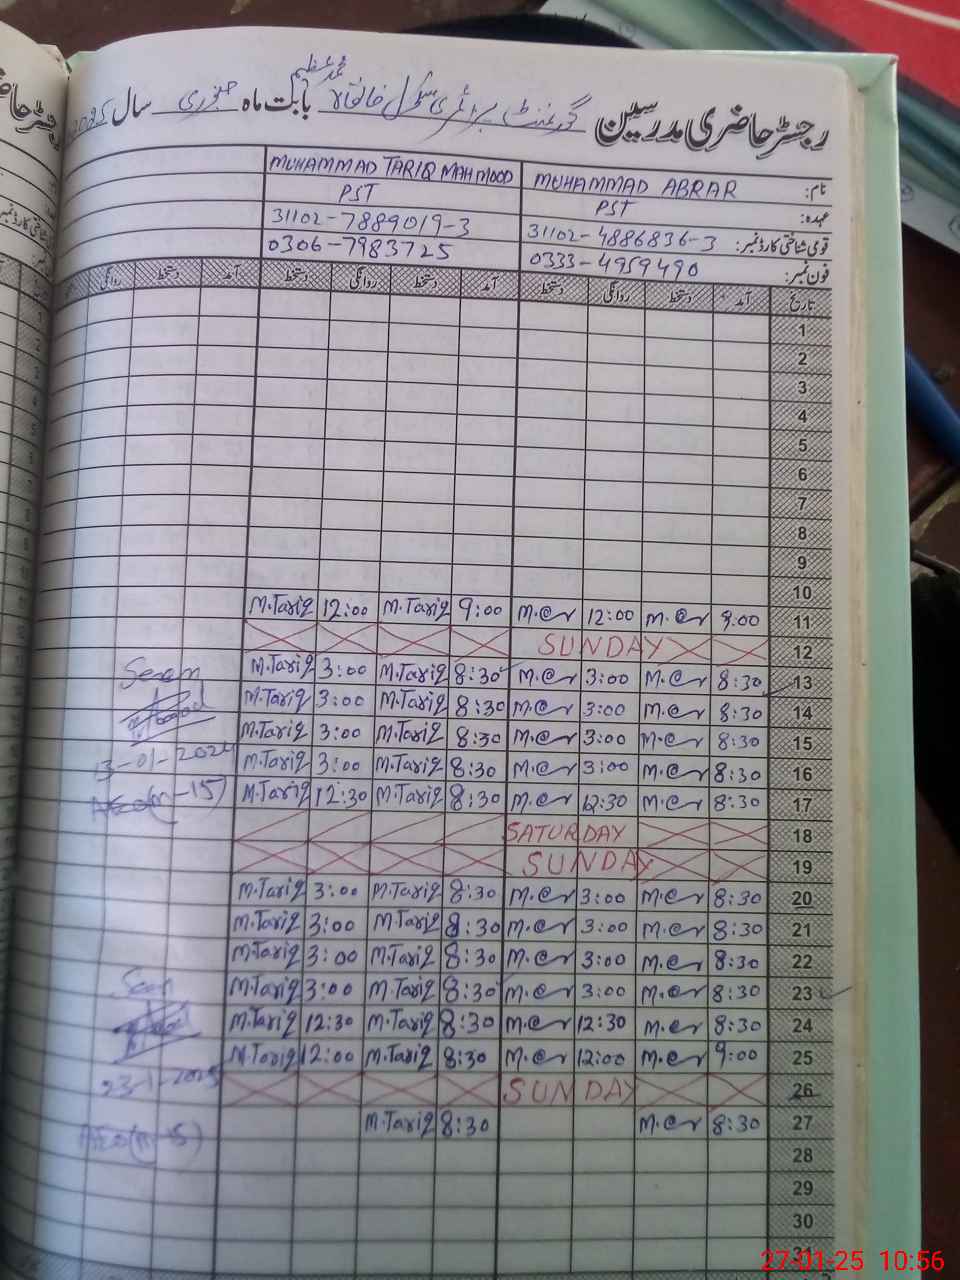 رجسٹر حاضری مدرسین گورنمنٹ پرائمری سکول خانقاہ محمد عظیم بابت ماہ جنوری سال 2025
نام: MUHAMMAD ABRAR MUHAMMAD TARIQ MAHMOOD
عہدہ: PST PST
قومی شناختی کارڈ نمبر: 31102-4886836-3 31102-7889019-3
فون نمبر: 0333-4959490 0306-7983725
تاریخ آمد دستخط روانگی دستخط آمد دستخط روانگی دستخط آمد دستخط روانگی
1
2
3
4
5
6
7
8
9
10
M.Tariq 12:00 M.Tariq 9:00 12:00 9:00 11
SUNDAY 12
M.Tariq 3:00 M.Tariq 8:30 3:00 8:30 13
M.Tariq 3:00 M.Tariq 8:30 3:00 8:30 14
M.Tariq 3:00 M.Tariq 8:30 3:00 8:30 15
M.Tariq 3:00 M.Tariq 8:30 3:00 8:30 16
M.Tariq 12:30 M.Tariq 8:30 12:30 8:30 17
SATURDAY 18
SUNDAY 19
M.Tariq 3:00 M.Tariq 8:30 3:00 8:30 20
M.Tariq 3:00 M.Tariq 8:30 3:00 8:30 21
M.Tariq 3:00 M.Tariq 8:30 3:00 8:30 22
M.Tariq 3:00 M.Tariq 8:30 3:00 8:30 23
M.Tariq 12:30 M.Tariq 8:30 12:30 8:30 24
M.Tariq 12:00 M.Tariq 8:30 12:00 9:00 25
SUNDAY 26
M.Tariq 8:30 8:30 27
28
29
30
31
Seen
13-01-2024
AEO(M-15)
Seen
23-1-2025
AEO(M-15)
27-01-25 10:56